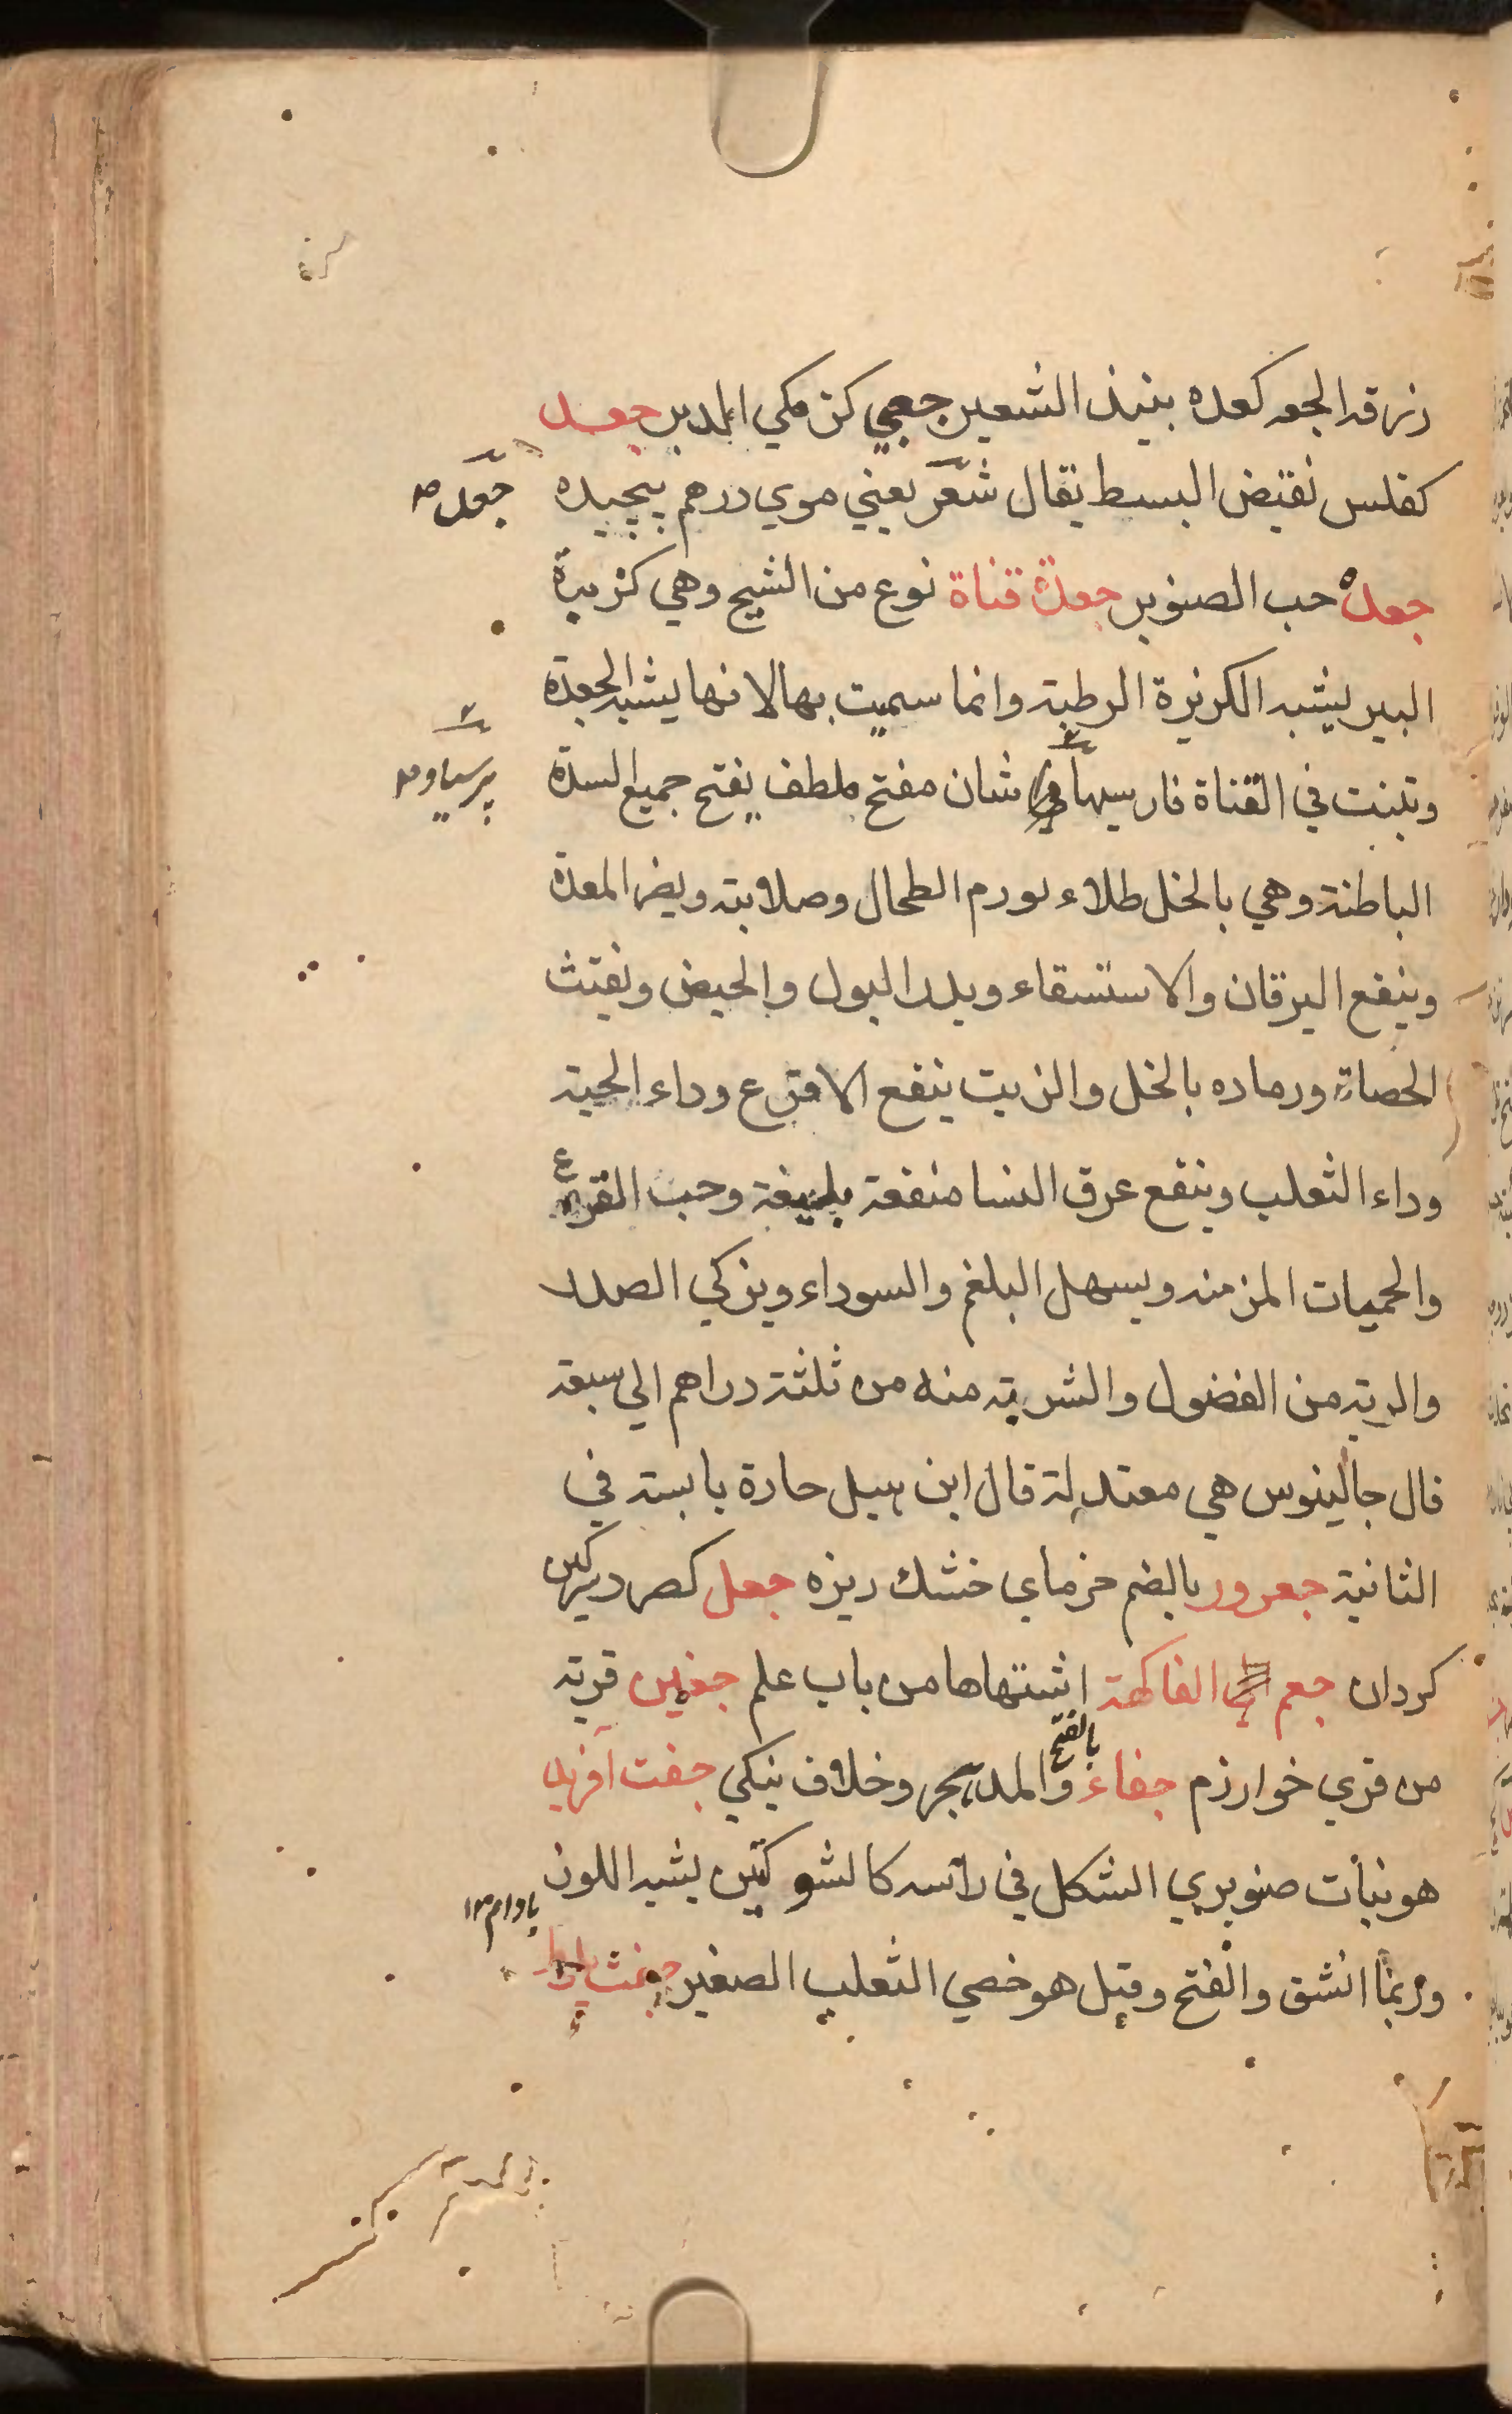 زرقه الجعه كعده بنيذ الشعير جعبي كز مكي الدبر جعد
كفلس نقيض البسط يقال شعر يعني موي درهم پيچيده
جعد صه
جعده حب الصنوبر جعدة قناة نوع من الشيح وهي كزبرة
البير يشبه الكزبرة الرطبة وانما سميت بها لانها يشبه الجعدة
وتنبت في القناة فارسيها شان مفتح ملطف يفتح جميع السدة
پرسياو صه
الباطنة وهي بالخل طلاء لورم الطحال وصلابته ويضر المعدة
وينفع اليرقان والاستسقاء ويدر البول والحيض ونفتث
الحصاة ورماده بالخل والزيت ينفع الاقرع وداء الحية
وداء الثعلب وينفع عرق النسا منفعة بليغة وحب القرع
والحميات المزمنه ويسهل البلغم والسوداء ويزكي الصدر
والريه من الفضول والشربة منه من ثلثة دراهم الي سبعة
قال جالينوس هي معتدلة قال ابن هبل حارة يابسة في
الثانية جعرور بالضم خرماي خشك ريزه جعل كصرد سركين
كردان جعم الفاكهة اشتهاها من باب علم جغمين قرية
من قري خوارزم جفاء بالفتح والمد هجر وخلاف نيكي جفت آفريد
هو نبات صنوبري الشكل في راسه كالشوكتين يشبه اللون
بادام ١٢
وربما انشق والفتح وقيل هو خصي الثعلب الصغير جفت بلوط